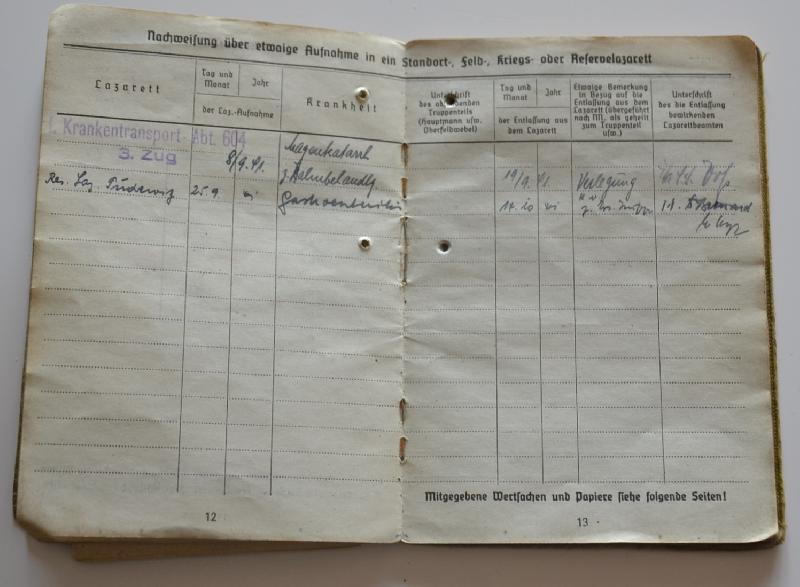 Nachweisung über etwaige Aufnahme in ein Standort-, Feld-, Kriegs- oder Reservelazarett
Lazarett
Tag und Monat
Jahr
der Laz.-Aufnahme
Krankheit
Unterschrift des absendenden Truppenteils (Hauptmann usw. Oberfeldwebel)
Tag und Monat
Jahr
der Entlassung aus dem Lazarett
Etwaige Bemerkung in Bezug auf die Entlassung aus dem Lazarett (übergeführt nach NN, als geheilt zum Truppenteil usw.)
Unterschrift des die Entlassung bewirkenden Lazarettbeamten
Krankentransport-Abt. 604
3. Zug
8/9. 41.
Magenkatarrh
z. Zahnbehandlg.
19/9. 41.
Verlegung
Res. Laz. 25.9.
14. 10
Mitgegebene Wertsachen und Papiere siehe folgende Seiten!
12
13